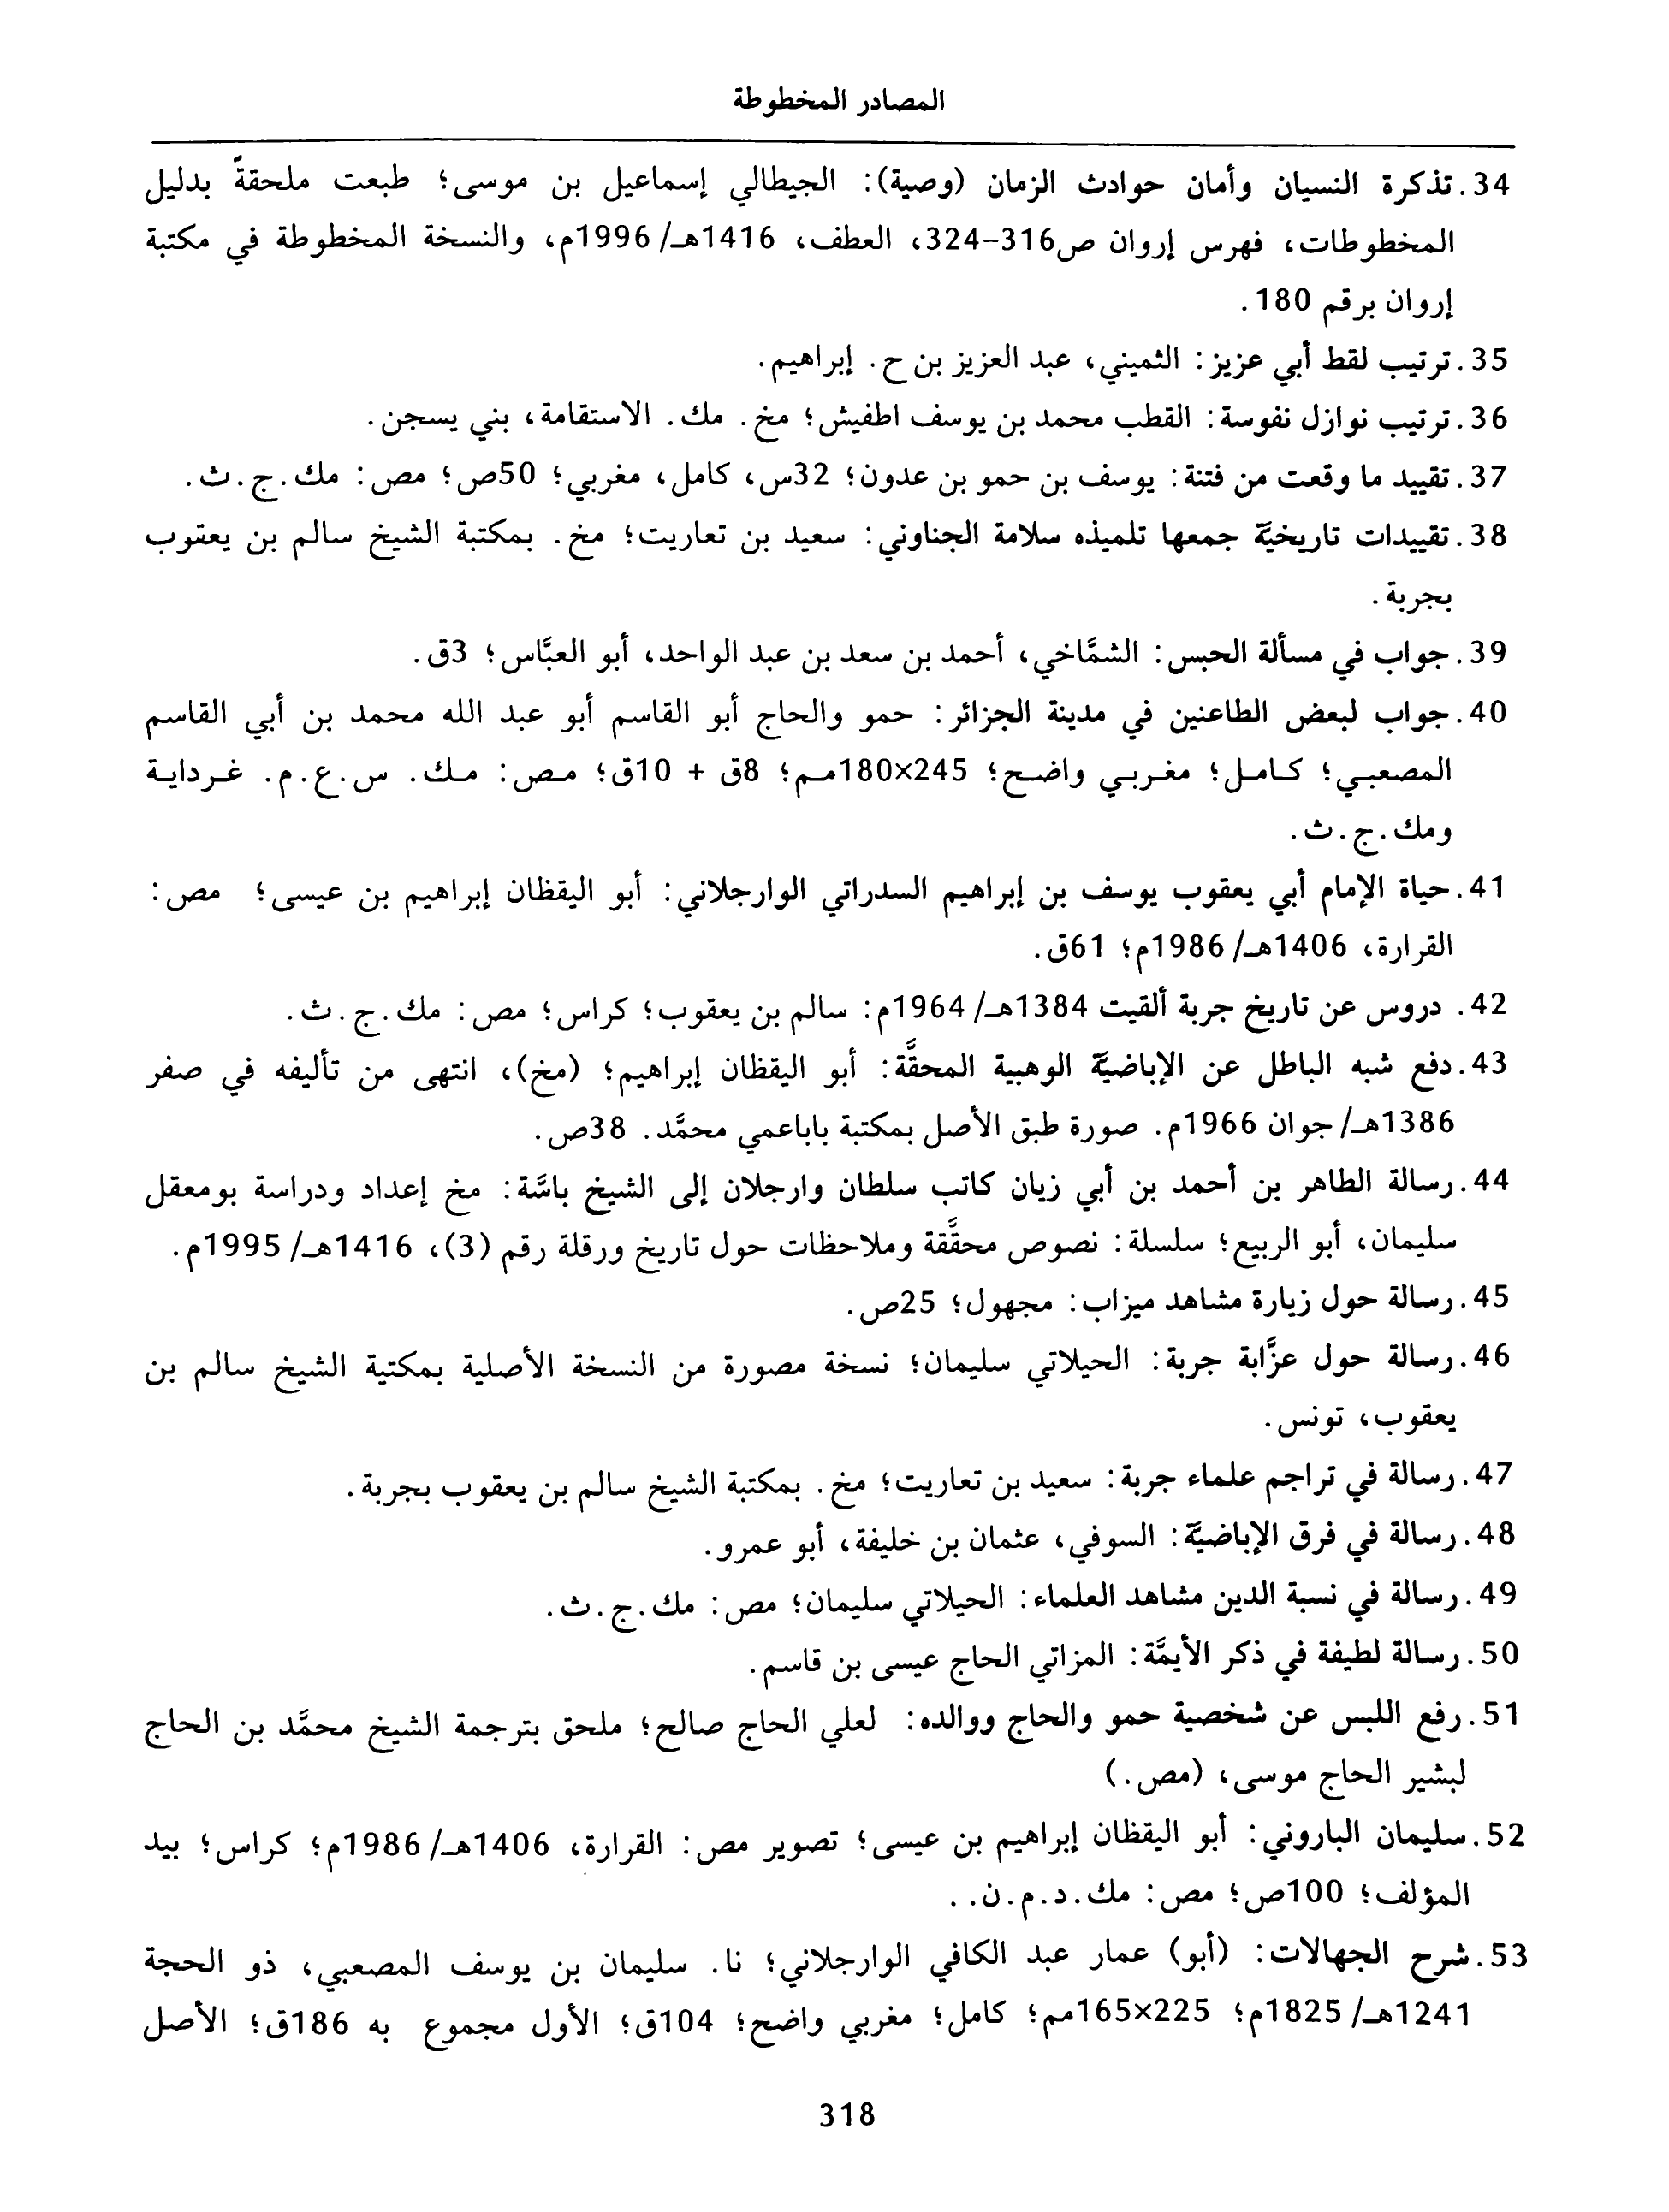 المصادر المخطوطة
34. تذكرة النسيان وأمان حوادث الزمان (وصية): الجيطالي إسماعيل بن موسى؛ طبعت ملحقةً بدليل
المخطوطات، فهرس إروان ص316-324، العطف، 1416هـ/1996م، والنسخة المخطوطة في مكتبة
إروان برقم 180.
35. ترتيب لقط أبي عزيز: الثميني، عبد العزيز بن ح. إبراهيم.
36. ترتيب نوازل نفوسة: القطب محمد بن يوسف اطفيش؛ مخ. مك. الاستقامة، بني يسجن.
37. تقييد ما وقعت من فتنة: يوسف بن حمو بن عدون؛ 32س، كامل، مغربي؛ 50ص؛ مص: مك.ج.ث.
38. تقييدات تاريخيَّة جمعها تلميذه سلامة الجناوني: سعيد بن تعاريت؛ مخ. بمكتبة الشيخ سالم بن يعقوب
بجربة.
39. جواب في مسألة الحبس: الشمَّاخي، أحمد بن سعد بن عبد الواحد، أبو العبَّاس؛ 3ق.
40. جواب لبعض الطاعنين في مدينة الجزائر: حمو والحاج أبو القاسم أبو عبد الله محمد بن أبي القاسم
المصعبي؛ كامل؛ مغربي واضح؛ 245×180مم؛ 8ق + 10ق؛ مص: مك. س.ع.م. غرداية
ومك.ج.ث.
41. حياة الإمام أبي يعقوب يوسف بن إبراهيم السدراتي الوارجلاني: أبو اليقظان إبراهيم بن عيسى؛ مص:
القرارة، 1406هـ/1986م؛ 61ق.
42. دروس عن تاريخ جربة ألقيت 1384هـ/1964م: سالم بن يعقوب؛ كراس؛ مص: مك.ج.ث.
43. دفع شبه الباطل عن الإباضيَّة الوهبية المحقَّة: أبو اليقظان إبراهيم؛ (مخ)، انتهى من تأليفه في صفر
1386هـ/جوان 1966م. صورة طبق الأصل بمكتبة باباعمي محمَّد. 38ص.
44. رسالة الطاهر بن أحمد بن أبي زيان كاتب سلطان وارجلان إلى الشيخ باسَّة: مخ إعداد ودراسة بومعقل
سليمان، أبو الربيع؛ سلسلة: نصوص محقَّقة وملاحظات حول تاريخ ورقلة رقم (3)، 1416هـ/1995م.
45. رسالة حول زيارة مشاهد ميزاب: مجهول؛ 25ص.
46. رسالة حول عزَّابة جربة: الحيلاتي سليمان؛ نسخة مصورة من النسخة الأصلية بمكتية الشيخ سالم بن
يعقوب، تونس.
47. رسالة في تراجم علماء جربة: سعيد بن تعاريت؛ مخ. بمكتبة الشيخ سالم بن يعقوب بجربة.
48. رسالة في فرق الإباضيَّة: السوفي، عثمان بن خليفة، أبو عمرو.
49. رسالة في نسبة الدين مشاهد العلماء: الحيلاتي سليمان؛ مص: مك.ج.ث.
50. رسالة لطيفة في ذكر الأيمَّة: المزاتي الحاج عيسى بن قاسم.
51. رفع اللبس عن شخصية حمو والحاج ووالده: لعلي الحاج صالح؛ ملحق بترجمة الشيخ محمَّد بن الحاج
لبشير الحاج موسى، (مص.)
52. سليمان الباروني: أبو اليقظان إبراهيم بن عيسى؛ تصوير مص: القرارة، 1406هـ/1986م؛ كراس؛ بيد
المؤلف؛ 100ص؛ مص: مك.د.م.ن..
53. شرح الجهالات: (أبو) عمار عبد الكافي الوارجلاني؛ نا. سليمان بن يوسف المصعبي، ذو الحجة
1241هـ/1825م؛ 225×165مم؛ كامل؛ مغربي واضح؛ 104ق؛ الأول مجموع به 186ق؛ الأصل
318